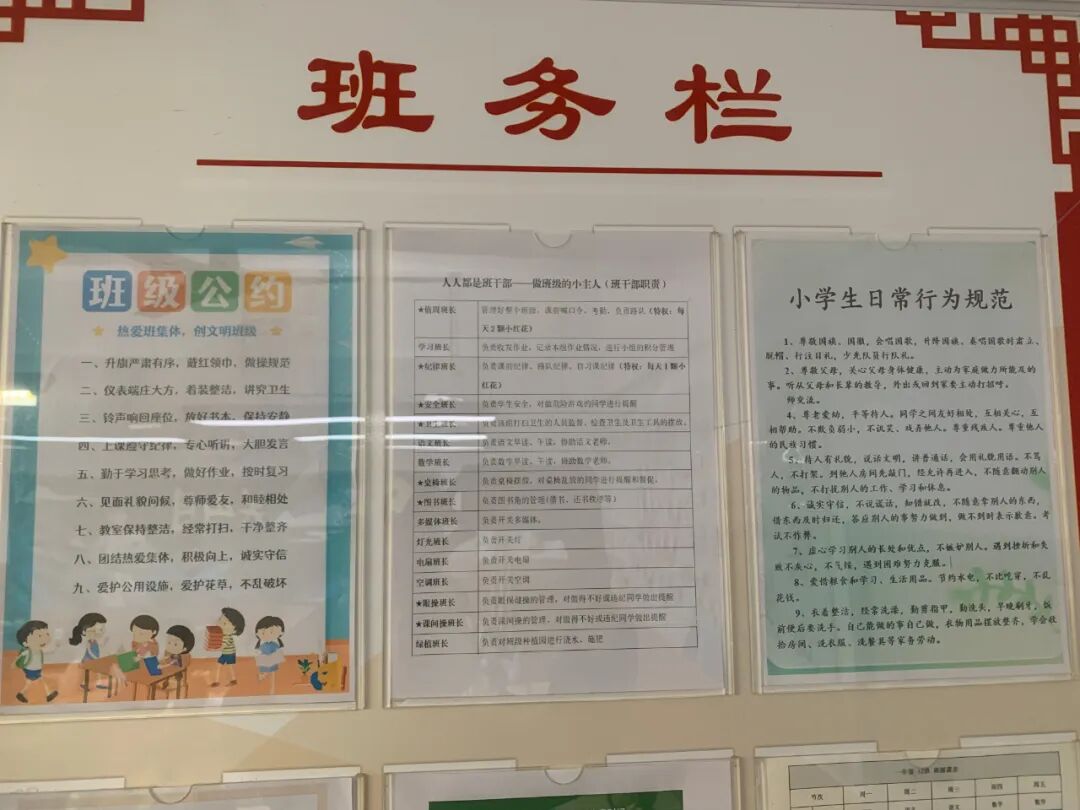 班务栏
班级公约
热爱班集体，创文明班级
一、升旗严肃有序，戴红领巾，做操规范
二、仪表端庄大方，着装整洁，讲究卫生
三、铃声响回座位，放好书本，保持安静
四、上课遵守纪律，专心听讲，大胆发言
五、勤于学习思考，做好作业，按时复习
六、见面礼貌问候，尊师爱友，和睦相处
七、教室保持整洁，经常打扫，干净整齐
八、团结热爱集体，积极向上，诚实守信
九、爱护公用设施，爱护花草，不乱破坏
人人都是班干部——做班级的小主人（班干部职责）
★值周班长 管理好整个班级，课前喊口令、考勤、负责路队（特权：每
天2颗小红花）
学习班长 负责收发作业，记录本组作业情况，进行小组的积分管理
★纪律班长 负责课前纪律、排队纪律、自习课纪律（特权：每天1颗小
红花）
★安全班长 负责学生安全，对做危险游戏的同学进行提醒
★卫生班长 负责该组打扫卫生的人员监督、检查卫生及卫生工具的摆放。
语文班长 负责语文早读、午读，协助语文老师。
数学班长 负责数学早读、午读，协助数学老师。
★桌椅班长 负责桌椅摆放，对桌椅乱放的同学进行提醒和督促。
★图书班长 负责图书角的管理（借书、还书秩序等）
多媒体班长 负责开关多媒体。
灯光班长 负责开关灯
电扇班长 负责开关电扇
空调班长 负责开关空调
★眼操班长 负责眼保健操的管理，对做得不好或违纪同学做出提醒
★课间操班长 负责课间操的管理，对做得不好或违纪同学做出提醒
绿植班长 负责对班级种植园进行浇水、施肥
小学生日常行为规范
1、尊敬国旗、国徽，会唱国歌，升降国旗、奏唱国歌时肃立、
脱帽、行注目礼，少先队员行队礼。
2、尊敬父母，关心父母身体健康，主动为家庭做力所能及的
事。听从父母和长辈的教导，外出或回到家要主动打招呼。
师交流。
4、尊老爱幼，平等待人。同学之间友好相处，互相关心，互
相帮助。不欺负弱小，不讥笑、戏弄他人。尊重残疾人。尊重他人
的民族习惯。
5、待人有礼貌，说话文明，讲普通话，会用礼貌用语。不骂
人，不打架。到他人房间先敲门，经允许再进入，不随意翻动别人
的物品，不打扰别人的工作、学习和休息。
6、诚实守信，不说谎话，知错就改，不随意拿别人的东西，
借东西及时归还，答应别人的事努力做到，做不到时表示歉意。考
试不作弊。
7、虚心学习别人的长处和优点，不嫉妒别人。遇到挫折和失
败不灰心，不气馁，遇到困难努力克服。
8、爱惜粮食和学习、生活用品。节约水电，不比吃穿，不乱
花钱。
9、衣着整洁，经常洗澡，勤剪指甲，勤洗头，早晚刷牙，饭
前便后要洗手。自己能做的事自己做，衣物用品摆放整齐，学会收
拾房间、洗衣服、洗餐具等家务劳动。
周一 周二 周三 周四 周五